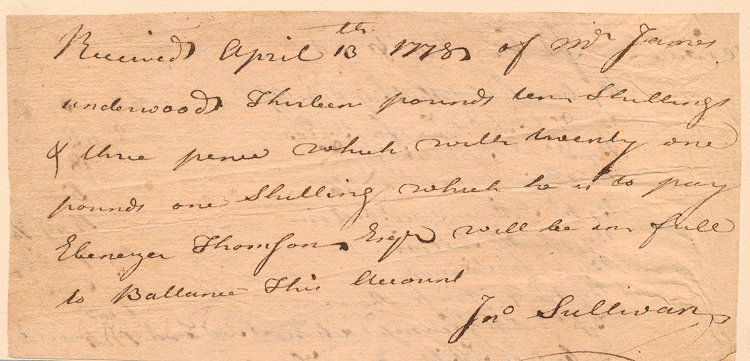 Received April 13th 1778 of Mr James
underwood Thirteen pounds ten Shillings
& three pence which with twenty one
pounds one Shilling which he is to pay
Ebenezer Thomson Esqr will be in full
to Ballance This Account
Jno Sullivan